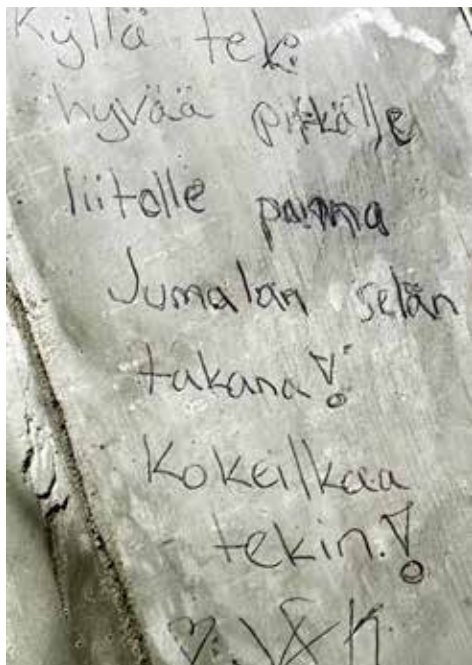 Kyllä teki
hyvää pitkälle
liitolle panna
Jumalan selän
takana!
Kokeilkaa
tekin.!
♡: J&K